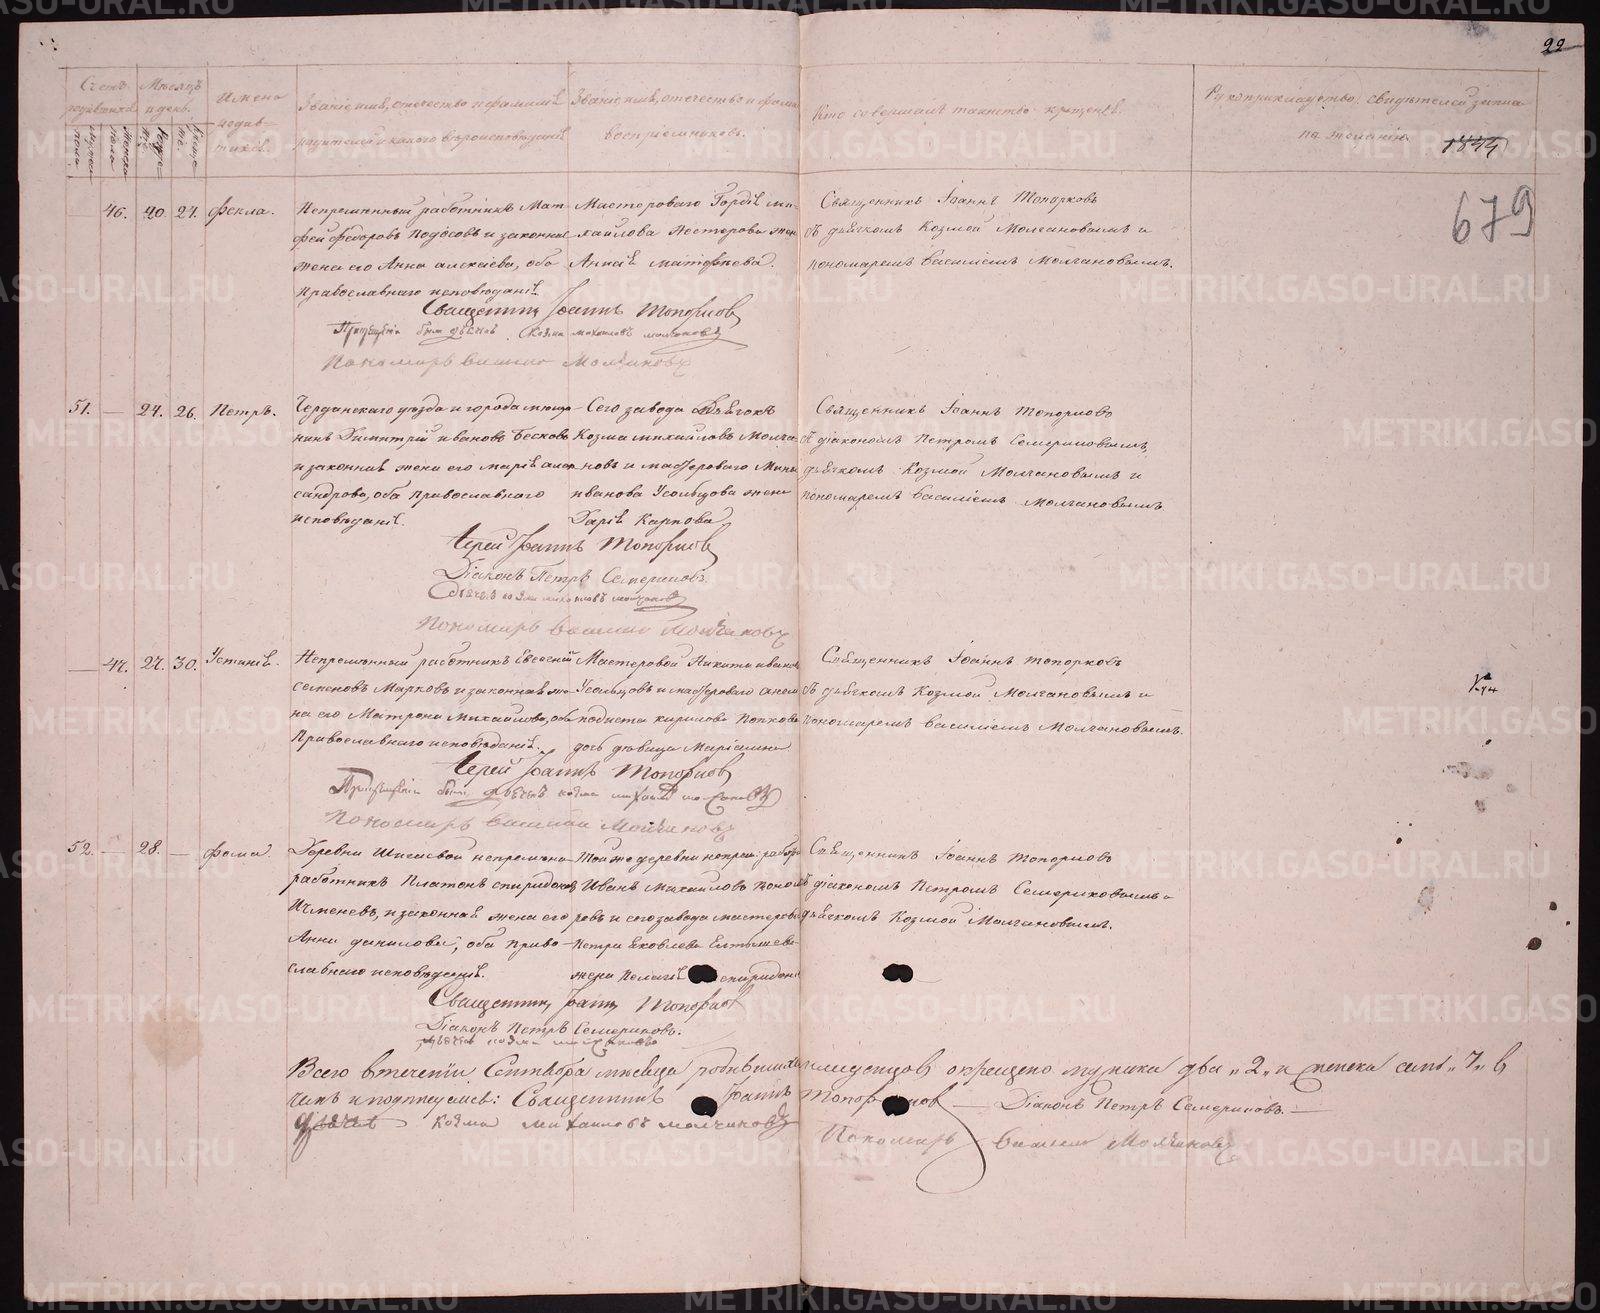 22
Счетъ родившихся
Мѣсяцъ и день.
Имена родившихся.
Званіе имя, отечество и фамилія родителей и какого вѣроисповѣданія
Званіе имя, отечество и фамилія воспріемниковъ.
Кто совершалъ таинство крещенія.
Рукоприкладство свидѣтелей записи по желанію.
1844
679
46. 20. 21. Фекла.
Непремѣнный работникъ Мат-
фей Федоровъ и законная
жена его Анна Алексѣева, оба
Православнаго исповѣданія.
Мастероваго Гордія Ми-
хайлова Нестерова жена
Матофѣева.
Священникъ Іоаннъ Топорковъ
съ дьячкомъ Козмой Молчановымъ и
пономаремъ Василіемъ Молчановымъ.
Священникъ Іоаннъ Топорковъ
дьячекъ Козма Михаиловъ Молчановъ
Пономарь Василий Молчановъ
51. — 24. 26. Петръ.
Чердынскаго уѣзда и города мѣща-
нинъ Димитрій Ивановъ
и законная жена его Марія Алек-
сандрова, оба Православнаго
исповѣданія.
Сего завода Дьячокъ
Козма Михайловъ Молча-
новъ и мастероваго
Иванова Усольцова жена
Дарія Карпова
Священникъ Іоаннъ Топорковъ
съ діакономъ Петромъ Семериковымъ,
дьячкомъ Козмой Молчановымъ и
пономаремъ Василіемъ Молчановымъ
Іерей Іоаннъ Топорковъ
Діаконъ Петръ Семериковъ.
Дьячекъ Козма Михаиловъ Молчановъ
Пономарь Василий Молчановъ
— 47. 27. 30. Устинія.
Непремѣнный работникъ Евсевій
Семеновъ Марковъ и законная же-
на его Матрона Михайлова, оба
Православнаго исповѣданія.
Мастеровой Никита Ивановъ
Усольцовъ и мастероваго
Кирилова Попкова
дочь дѣвица Маріамна
Священникъ Іоаннъ Топорковъ
съ дьячкомъ Козмой Молчановымъ и
пономаремъ Василіемъ Молчановымъ.
Іерей Іоаннъ Топорковъ
дьячекъ Козма Михаиловъ Молчановъ
Пономарь Василий Молчановъ
52. — 28. — Фома.
Деревни непремѣнный
работникъ Платонъ Спиридоновъ
и законная жена его
Анна Данилова, оба Право-
славнаго исповѣданія.
Той же деревни непрем: работн:
Иванъ Михайловъ Поном-
ревъ и сего завода мастероваго
Петра Яковлева Елтышева
жена Пелагія Спиридонова
Священникъ Іоаннъ Топорковъ
съ діакономъ Петромъ Семериковымъ и
дьячкомъ Козмой Молчановымъ.
Священникъ Іоаннъ Топорковъ
Діаконъ Петръ Семериковъ.
дьячекъ Козма Молчановъ
Всего втеченіи Сентября мѣсяца родившихся младенцовъ окрещено мужеска два „2„ и женска семь „7„ в
чемъ и подписуемся: Священникъ Іоаннъ Топорковъ — Діаконъ Петръ Семериковъ. —
Дьячекъ Козма Михаиловъ Молчановъ Пономарь Василий Молчановъ
METRIKI.GASO-URAL.RU